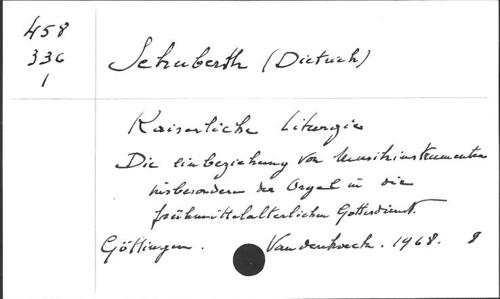 458
336
1
Schuberth (Dietrich)
Kaiserliche Liturgie
Die einbeziehung von Musikinstrumenten
insbesondere der Orgel in die
frühmittelalterlichen Gottesdienst.
Göttingen. Vandenhoeck. 1968. 8